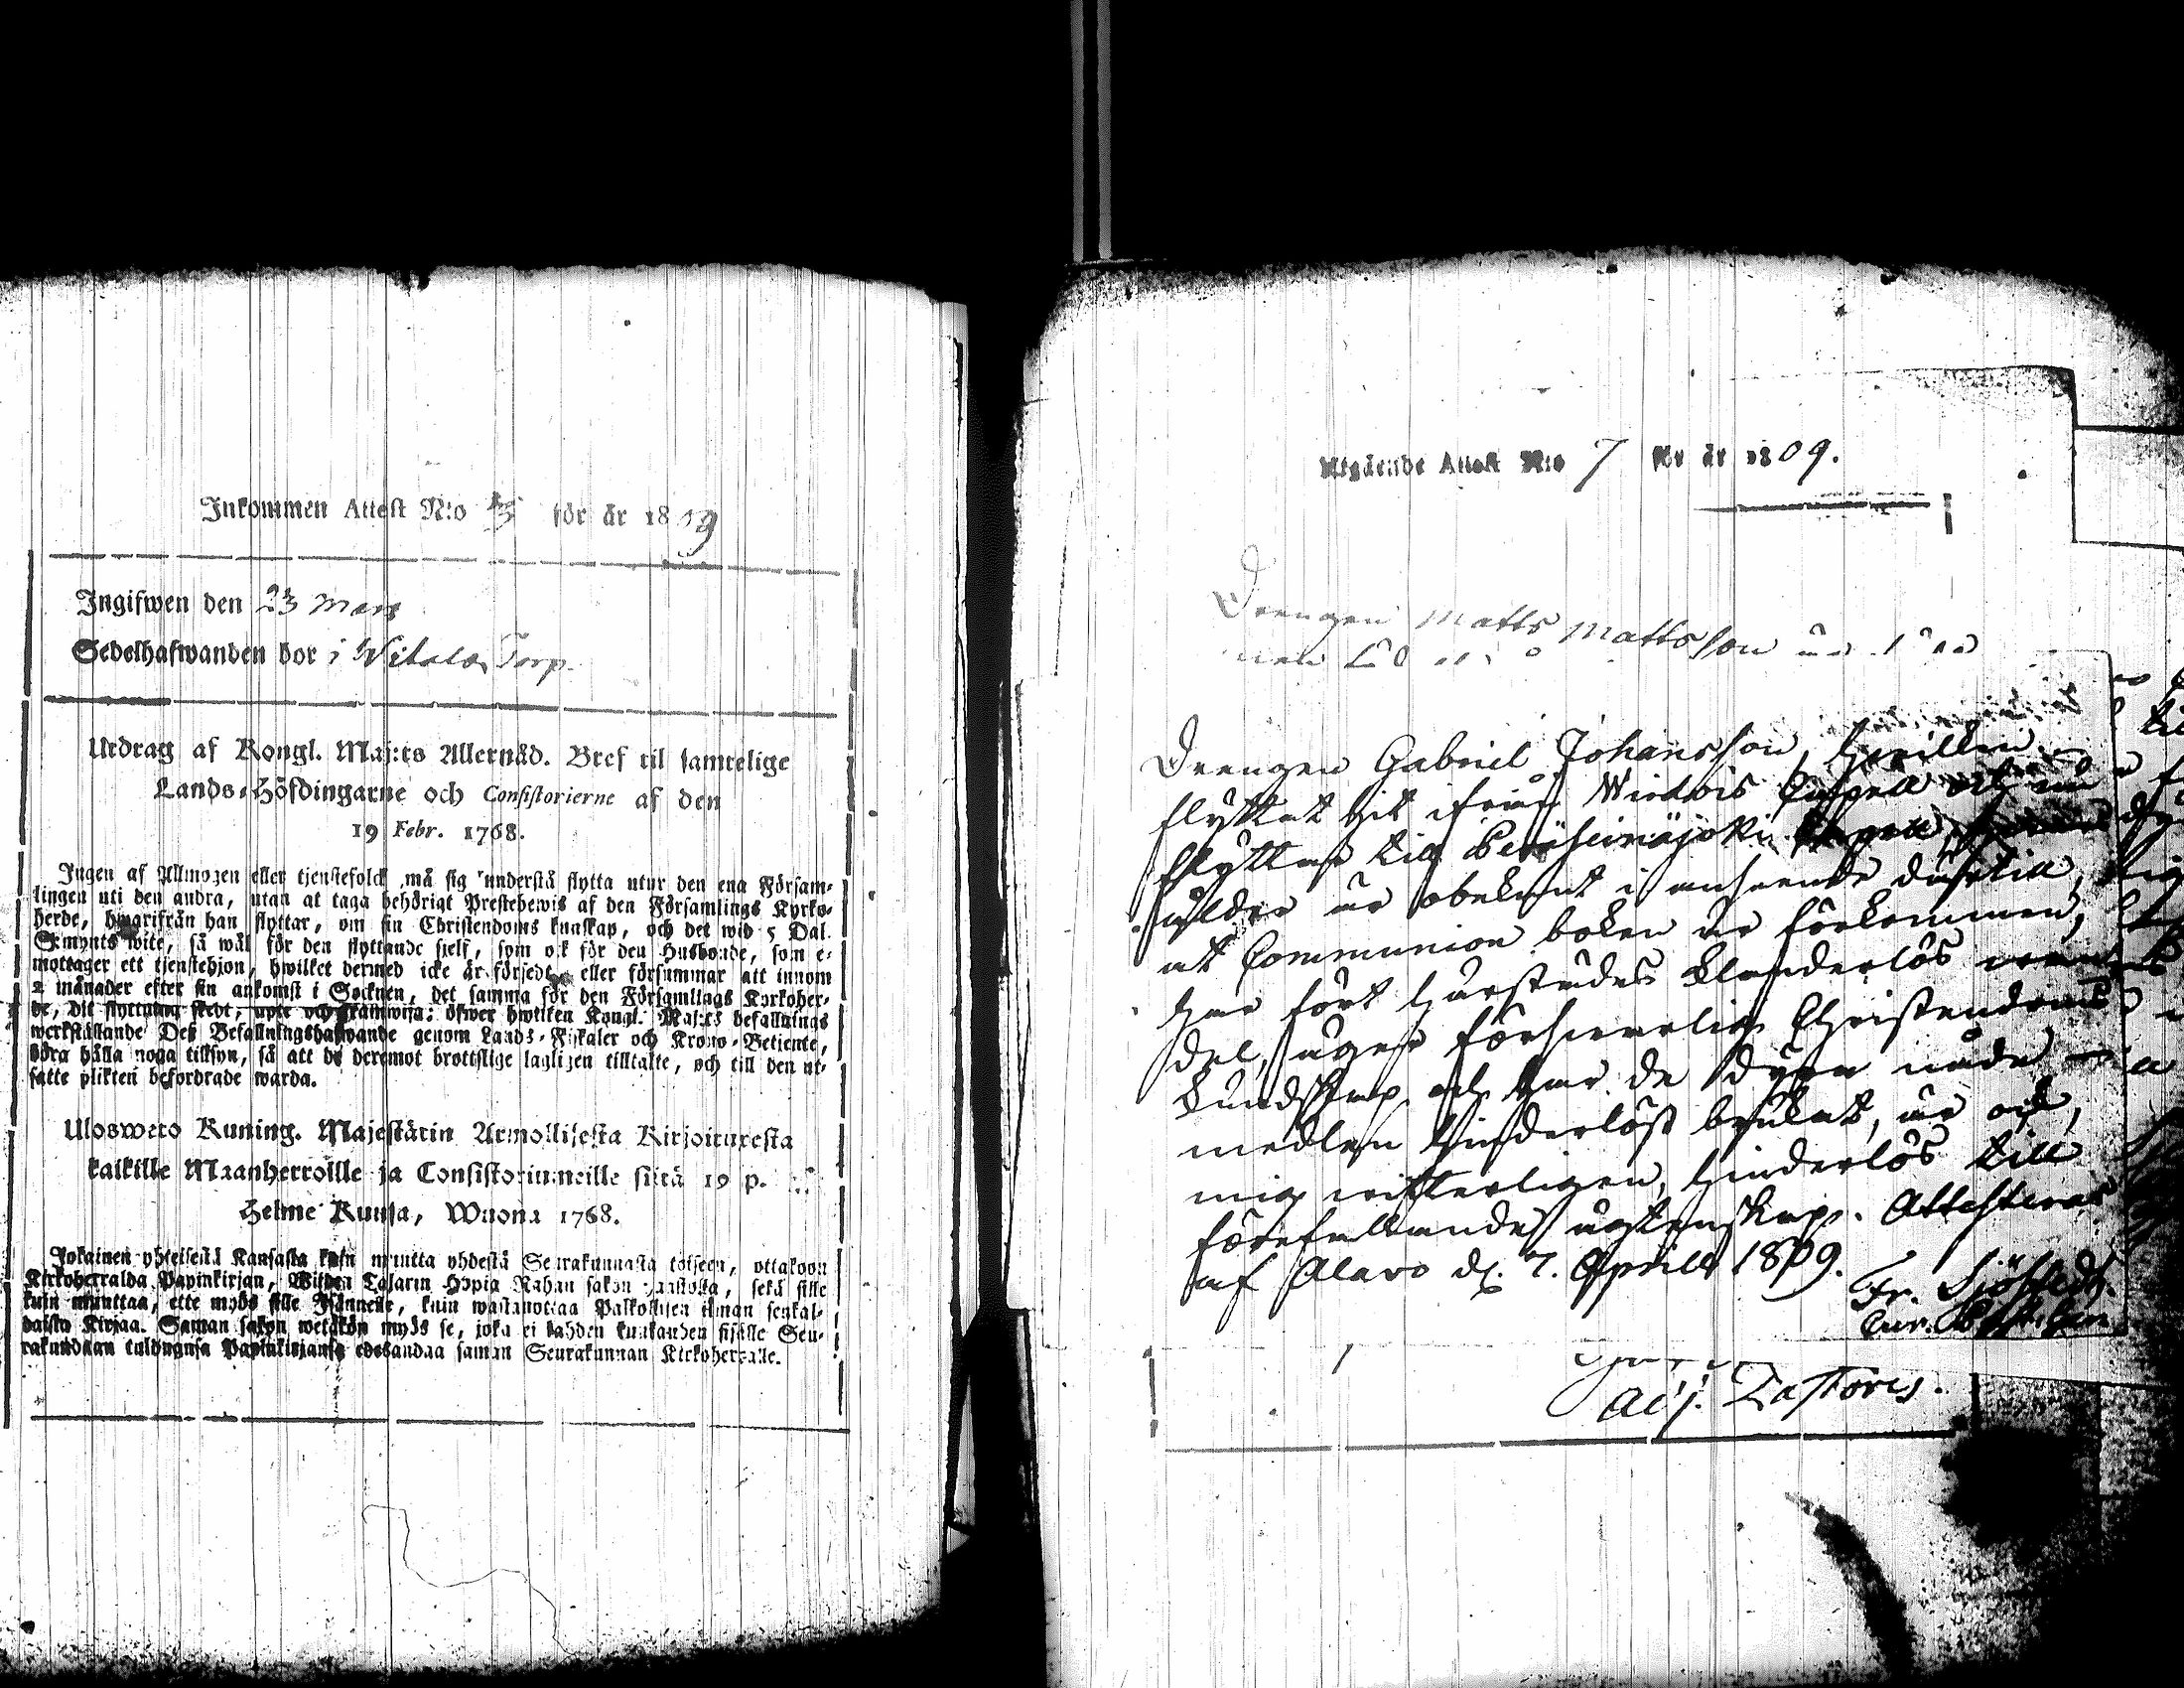 Inkommen Attest N:o för år 1809
Ingifwen den 23 Mars
Sedelhafwanden bor i Witala Torp.
Utdrag af Kongl. Maj:ts Allernåd. Bref til samtelige
Lands-Höfdingarne och Consistorierne af den
19 Febr. 1768.
Ingen af Allmogen eller tjenstefolck må sig understå flytta utur den ena Försam-
lingen uti den andra, utan at taga behörigt Prestebewis af den Församlings Kyrko-
herde, hwarifrån han flyttar, om sin Christendoms kunskap, och det wid 5 Dal.
S:mynts wite, så wäl för den flyttande sjelf, som ock för den Husbonde, som e-
mottager ett tjenstehjon, hwilket dermed icke är försedt, eller försummar att innom
2 månader efter sin ankomst i Socknen, det samma för den Församlings Kyrkoher-
de, dit flyttning skedt, upte och framwisa; öfwer hwilken Kongl. Maj:ts befallnings
werkställande Deß Befallningshafwande genom Lands-Fiskaler och Krono-Betjente,
böra hålla noga tillsyn, så att de deremot brottslige lagligen tilltalte, och till den ut-
satte plikten befordrade warda.
Uloswero Kuning. Majestätin Armollisesta Kirjoituresta
kaikille Maanherroille ja Consistoriumeille siitä 19 p.
Helme Kuusa, Wuonna 1768.
Jokainen yhteisestä Kansasta kuin muutta yhdestä Seurakunnasta toiseen, ottakoon
Kirkoherralda Papinkirjan, Wijden Talarin Hopia Rahan sakon haastolla, sekä sille
kuin muuttaa, ette myös sille Isännelle, kuin wastanottaa Palkollisen ilman senkal-
daista Kirjaa. Saman sakon wetäkön myös se, joka ei kahden kuukauden sisälle Seu-
rakundaan tulduansa Papinkirjansa edesandaa saman Seurakunnan Kirkoherralle.
Utgående Attest N:o 7 för år 1809.
Drengen Matts Mattsson
Drengen Gabriel Johansson, hvilken
flyttat hit ifrån Wirdois Capell och nu
flyttar till Peräseinäjoki
ålder är obekant i anseende dertill,
at Communion boken är förkommen,
har fört härstädes klanderlös vandel,
del, äger försvarlig Christendoms
kundskap och har de dyra nåde
medlen hinderlöst brukat, är ock,
mig witterligen, hinderlös till
förefallande ägtenskap. Attesteras
af Alavo d. 7. April 1809.
Fr. Sjöstedt.
Adj. Pastoris.